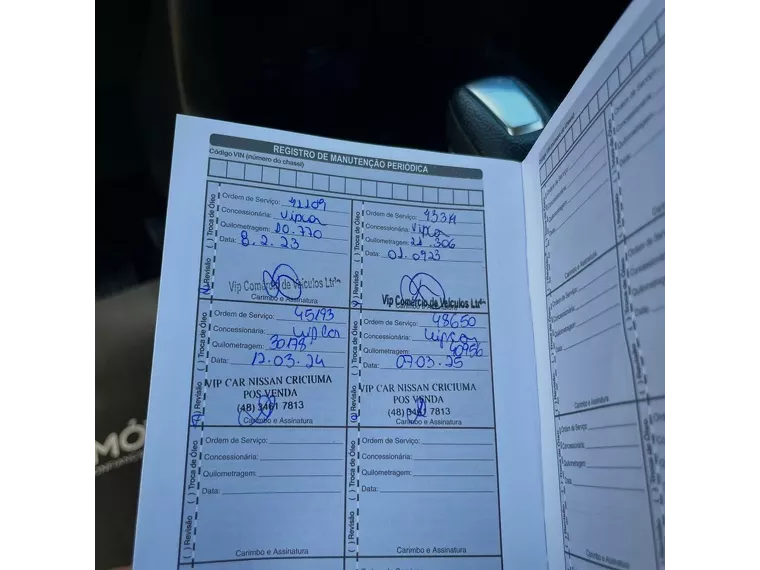 REGISTRO DE MANUTENÇÃO PERIÓDICA
Código VIN (número do chassi)
( ) Revisão ( ) Troca de Óleo
Ordem de Serviço: 41109
Concessionária: Vipcar
Quilometragem: 10.770
Data: 8.2.23
Vip Comércio de Veículos Ltda
Carimbo e Assinatura
( ) Revisão ( ) Troca de Óleo
Ordem de Serviço:
Concessionária: Vipcar
Quilometragem: 21.306
Data: 01.0923
Vip Comércio de Veículos Ltda
Carimbo e Assinatura
( ) Revisão ( ) Troca de Óleo
Ordem de Serviço: 45193
Concessionária: Vipcar
Quilometragem: 30178
Data: 12.03.24
VIP CAR NISSAN CRICIUMA
POS VENDA
(48) 3461 7813
Carimbo e Assinatura
( ) Revisão ( ) Troca de Óleo
Ordem de Serviço: 48650
Concessionária: Vipcar
Quilometragem: 40956
Data: 07.03.25
VIP CAR NISSAN CRICIUMA
POS VENDA
(48) 3461 7813
Carimbo e Assinatura
( ) Revisão ( ) Troca de Óleo
Ordem de Serviço:
Concessionária:
Quilometragem:
Data:
Carimbo e Assinatura
( ) Revisão ( ) Troca de Óleo
Ordem de Serviço:
Concessionária:
Quilometragem:
Data:
Carimbo e Assinatura
Código VIN
Ordem de Serviço:
Concessionária:
Quilometragem:
Data:
Carimbo e Assinatura
Ordem de Serviço:
Concessionária:
Quilometragem:
Data:
Carimbo e Assinatura
Ordem de Serviço:
Concessionária:
Quilometragem:
Data:
Carimbo e Assinatura
MÓ